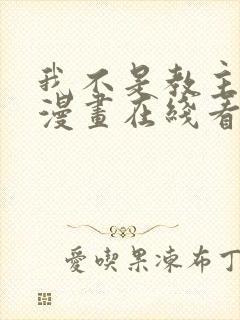 我不是教主
漫畫在綫看
愛喫果凍布丁